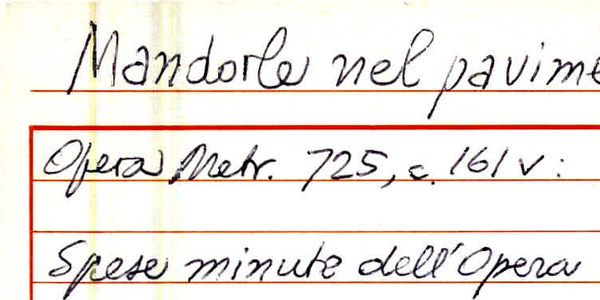 Mandorle nel pavime
Opera Metr. 725, c. 161 v:
Spese minute dell'Opera